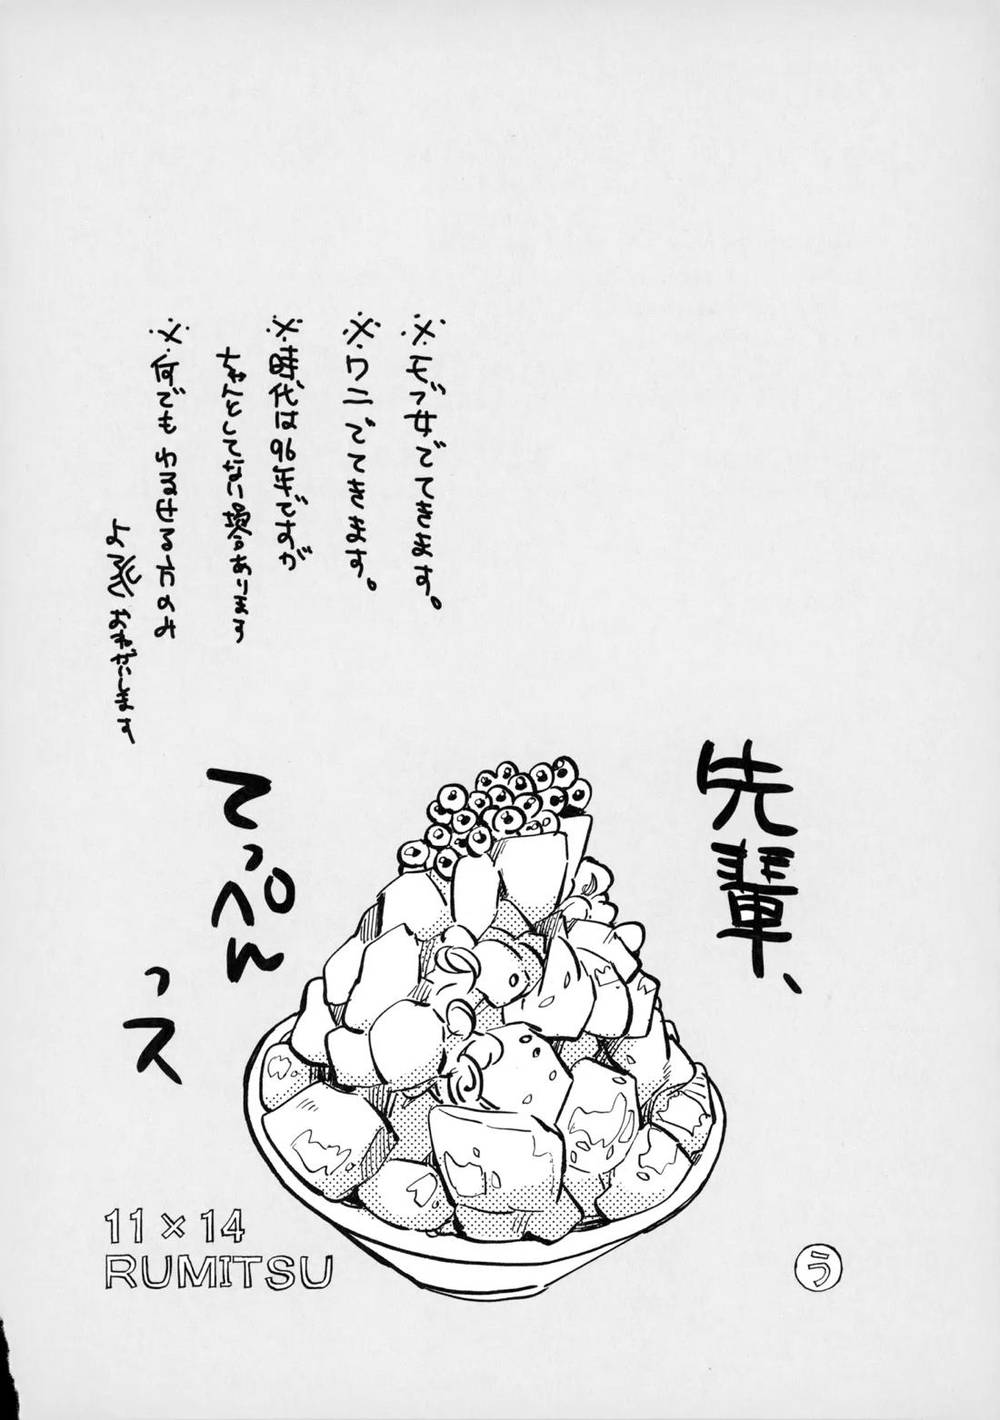 ※モブ女でてきます。
※ワニでてきます。
※時代は96年ですが
ちゃんとしてない場合あります
※何でもゆるせる方のみ
おねがいします
先輩、
てっぺん
っス
11×14
RUMITSU
う